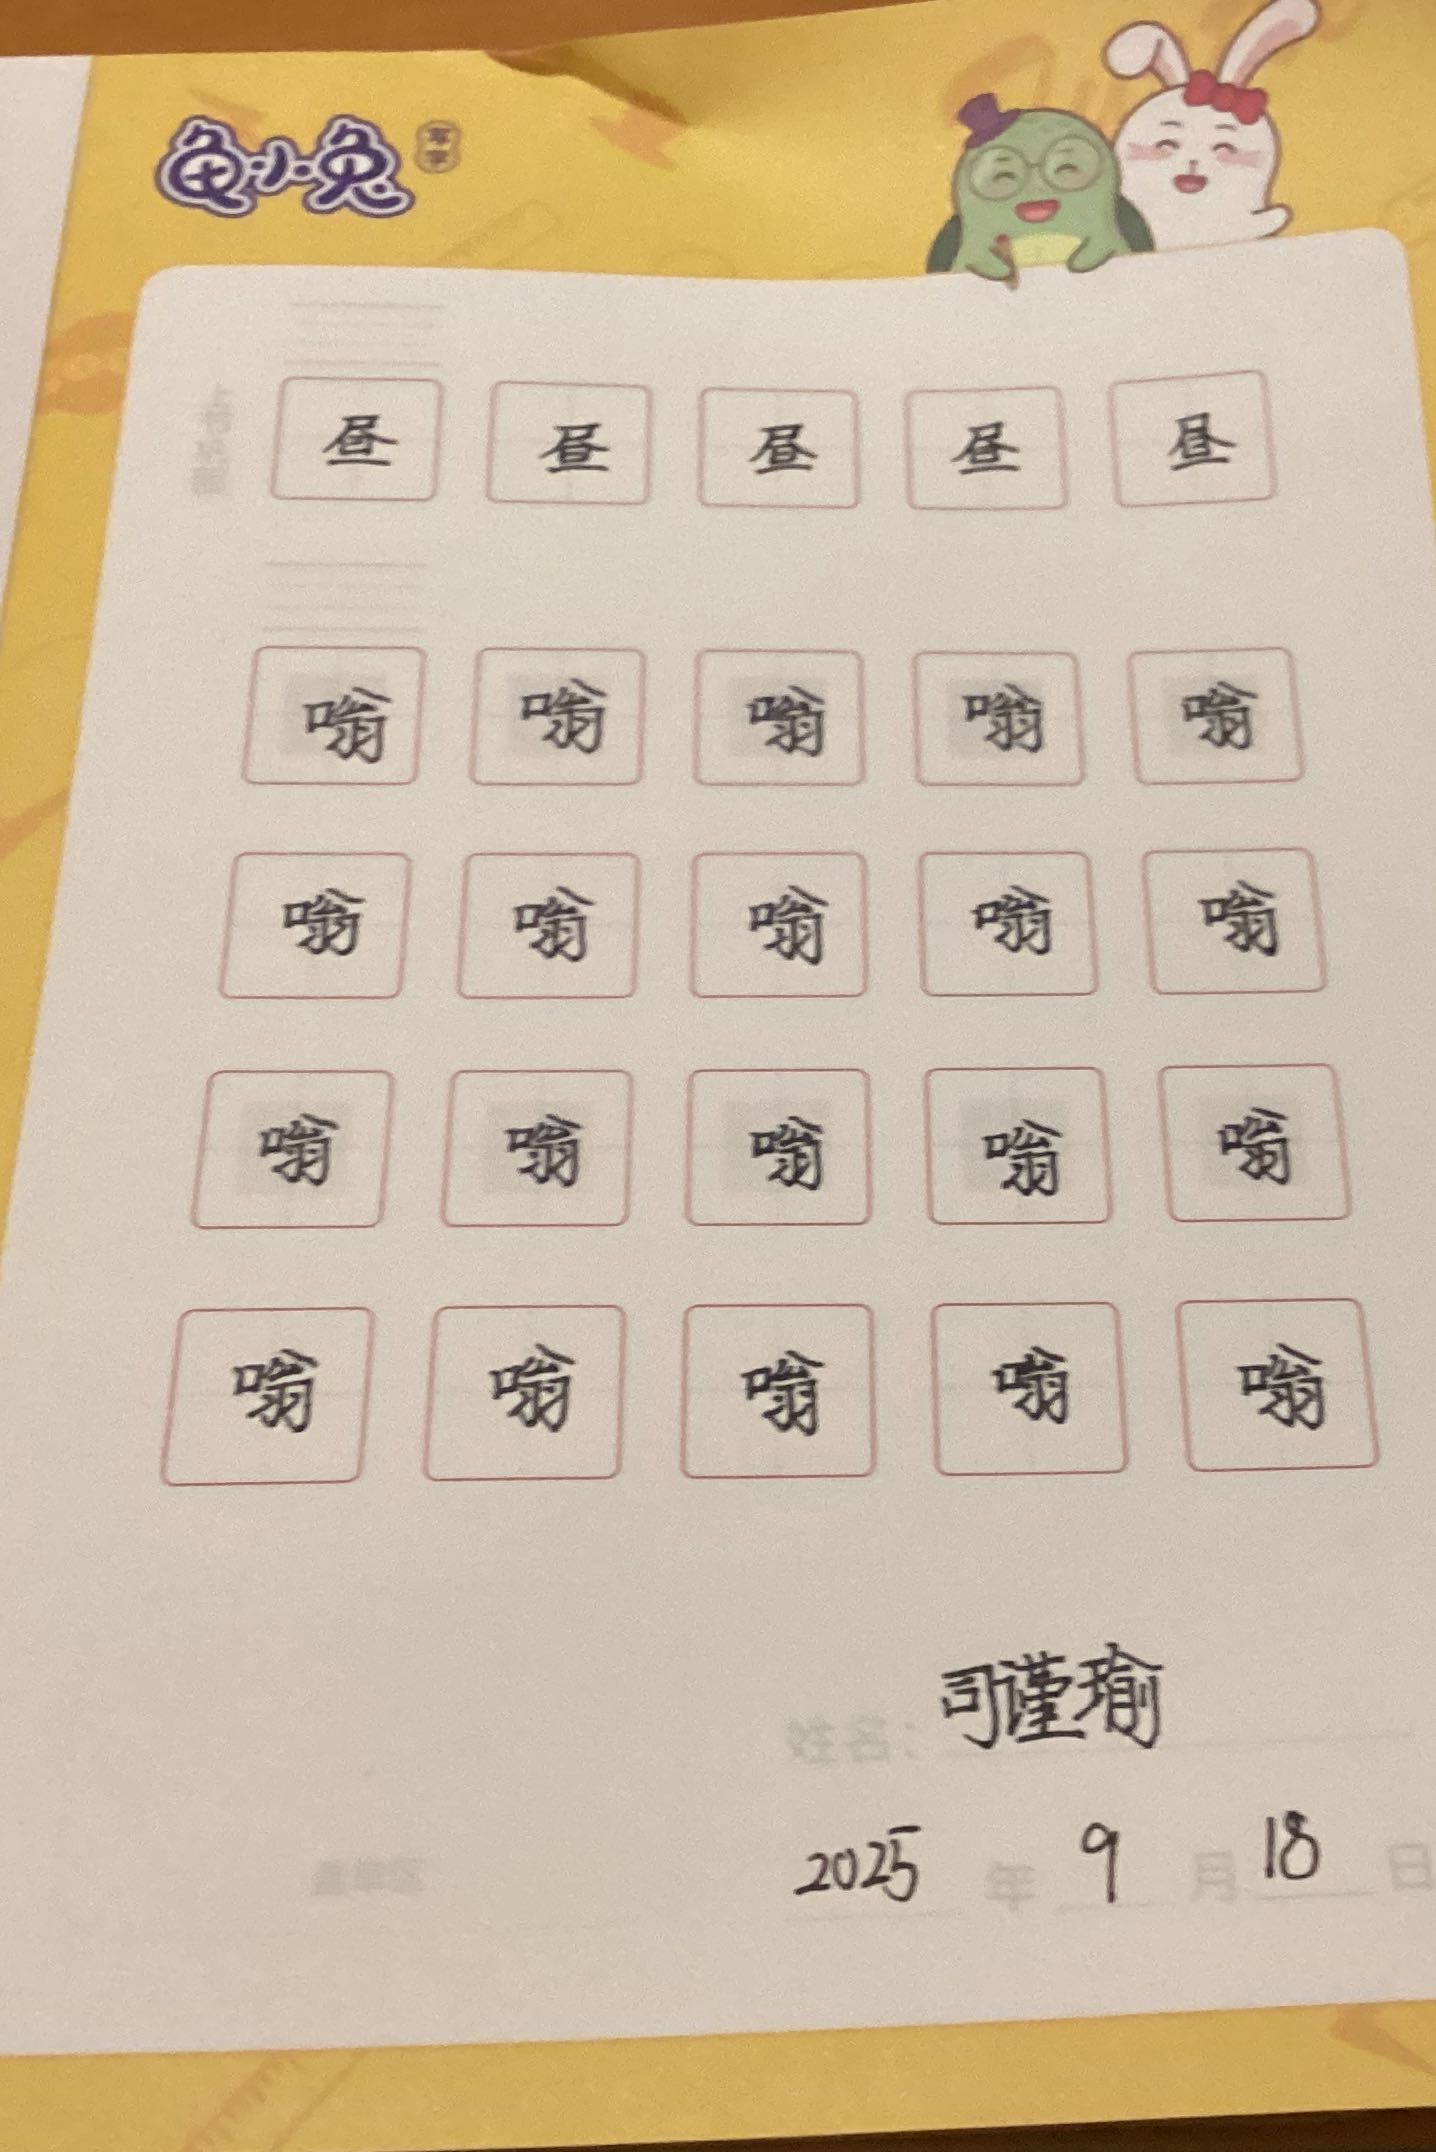 龟小兔 写字
昼 昼 昼 昼 昼
嗡 嗡 嗡 嗡 嗡
嗡 嗡 嗡 嗡 嗡
嗡 嗡 嗡 嗡 嗡
嗡 嗡 嗡 嗡 嗡
姓名: 司谨瑜
2025 年 9 月 18 日